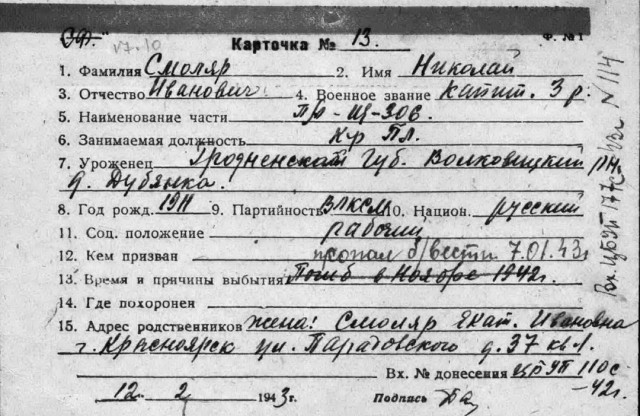 17.10
Карточка № 13.
Ф. №1
1. Фамилия Смоляр 2. Имя Николай
3. Отчество Иванович 4. Военное звание капит. 3 р.
5. Наименование части ПЛ-Щ-306.
6. Занимаемая должность К-р ПЛ.
7. Уроженец Гродненской Губ. Волковицкий рн.
д. Дубянка.
8. Год рожд. 1911 9. Партийность ВЛКСМ 10. Национ. русский
11. Соц. положение рабочий
12. Кем призван пропал б/вести 7.01.43г
13. Время и причины выбытия Погиб в Ноябре 1942г.
14. Где похоронен
15. Адрес родственников жена: Смоляр Екат. Ивановна
г. Красноярск ул. д. 37 кв 1.
Вх. № донесения ЦПУП 110с
-42г.
12 2 1943г. Подпись